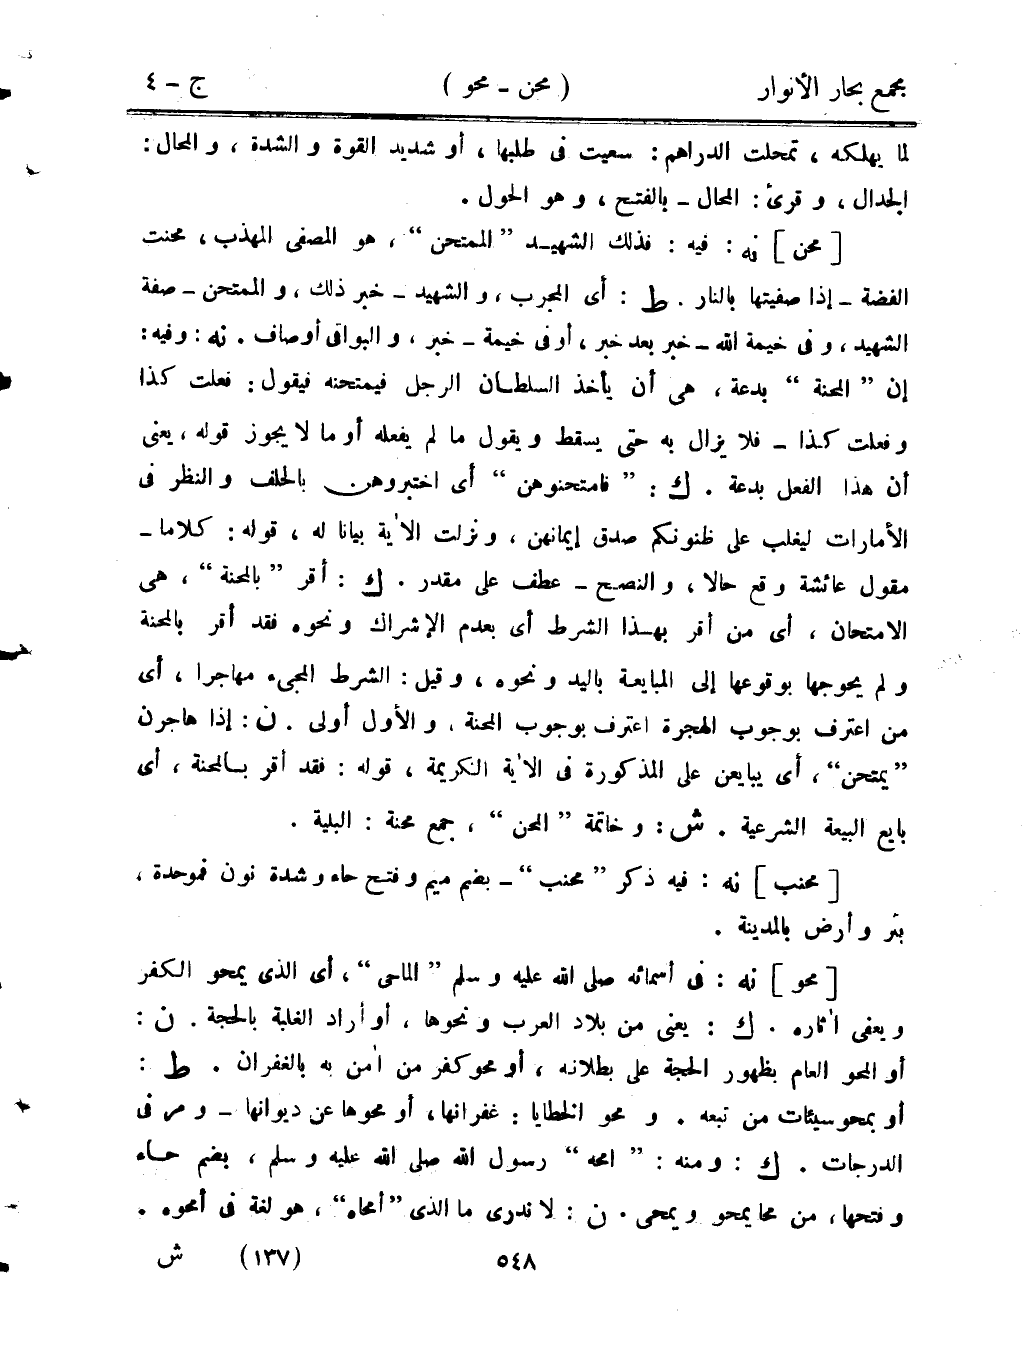 مجمع بحار الأنوار ( محن - محو ) ج - ٤
لما يهلكه ، تمحلت الدراهم : سعيت فى طلبها ، أو شديد القوة و الشدة ، و المحال :
الجدال ، و قرئ : المحال - بالفتح ، و هو الحول .
[ محن ] نه : فيه : فذلك الشهيد ” الممتحن “ ، هو المصفى المهذب ، محنت
الفضة - إذا صفيتها بالنار . ط : أى المجرب ، و الشهيد - خبر ذلك ، و الممتحن - صفة
الشهيد ، و فى خيمة الله - خبر بعد خبر ، أو فى خيمة - خبر ، و البواقى أوصاف . نه : و فيه :
إن ” المحنة “ بدعة ، هى أن يأخذ السلطان الرجل فيمتحنه فيقول : فعلت كذا
و فعلت كذا - فلا يزال به حتى يسقط و يقول ما لم يفعله أو ما لا يجوز قوله ، يعنى
أن هذا الفعل بدعة . ك : ” فامتحنوهن “ أى اختبروهن بالحلف و النظر فى
الأمارات ليغلب على ظنونكم صدق إيمانهن ، و نزلت الاٰية بيانا له ، قوله : كلاما -
مقول عائشة وقع حالا ، و النصح - عطف على مقدر . ك : أقر ” بالمحنة “ ، هى
الامتحان ، أى من أقر بهذا الشرط أى بعدم الإشراك و نحوه فقد أقر بالمحنة
و لم يحوجها بوقوعها إلى المبايعة باليد و نحوه ، و قيل : الشرط المجىء مهاجرا ، أى
من اعترف بوجوب الهجرة اعترف بوجوب المحنة ، و الأول أولى . ن : إذا هاجرن
” يمتحن “ ، أى يبايعن على المذكورة فى الاٰية الكريمة ، قوله : فقد أقر بالمحنة ، أى
بايع البيعة الشرعية . ش : و خاتمة ” المحن “ ، جمع محنة : البلية .
[ محنب ] نه : فيه ذكر ” محنب “ - بضم ميم و فتح حاء و شدة نون فموحدة ،
بئر و أرض بالمدينة .
[ محو ] نه : فى أسمائه صلى الله عليه و سلم ” الماحى “ ، أى الذى يمحو الكفر
و يعفى اٰثاره . ك : يعنى من بلاد العرب و نحوها ، أو أراد الغلبة بالحجة . ن :
أو المحو العام بظهور الحجة على بطلانه ، أو محو كفر من اٰمن به بالغفران . ط :
أو يمحو سيئات من تبعه . و محو الخطايا : غفرانها ، أو محوها عن ديوانها - و مر فى
الدرجات . ك : و منه : ” امحه “ رسول الله صلى الله عليه و سلم ، بضم حاء
و فتحها ، من محا يمحو و يمحى . ن : لا ندرى ما الذى ” أمحاه “ ، هو لغة فى أمحوه .
٥٤٨ (١٣٧) ش